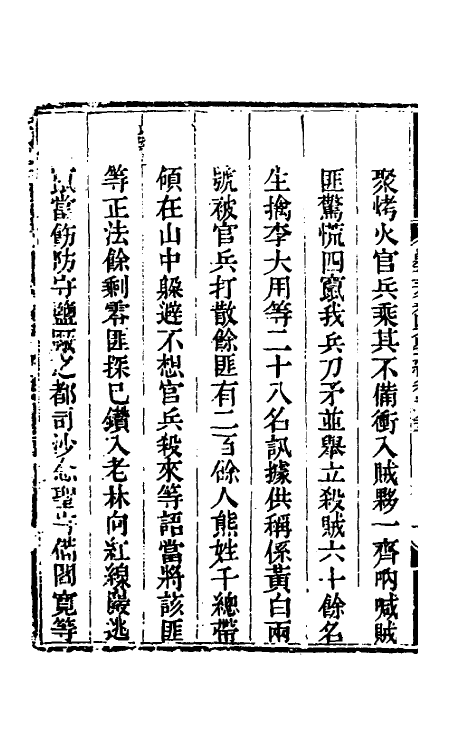 聚烤火官兵乘其不備衝入賊夥一齊吶喊賊
匪驚慌四竄我兵刀矛並舉立殺賊六十餘名
生擒李大用等二十八名訊據供稱係黃白兩
號被官兵打散餘匪有二百餘人熊姓千總帶
領在山中躲避不想官兵殺來等語當將該匪
等正法餘剩零匪探已鑽入老林向紅線巖逃
當飭防守鹽廠之都司沙念聖守備閻寬等